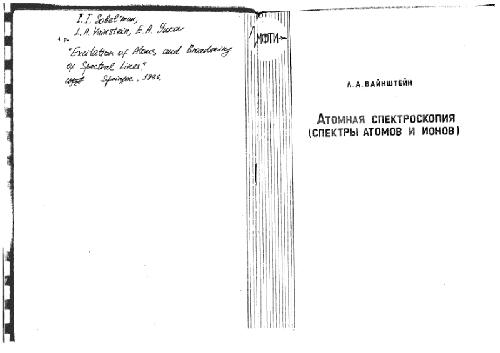 I. I. Sobel'man,
L.A. Vainstein, E.A. Yukov
"Excitation of Atoms and Broadening
of Spectral Lines",
Springer, 1981.
МФТИ
Л. А. ВАЙНШТЕЙН
АТОМНАЯ СПЕКТРОСКОПИЯ
(СПЕКТРЫ АТОМОВ И ИОНОВ)